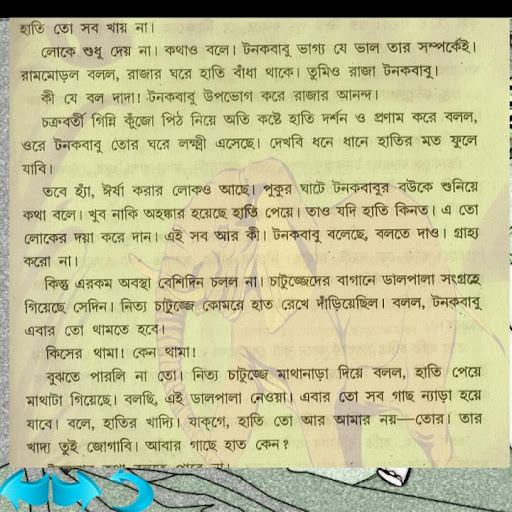 হাতি তো সব খায় না।
লোকে শুধু দেয় না। কথাও বলে। টনকবাবু ভাগ্য যে ভাল তার সম্পর্কেই।
রামমোড়ল বলল, রাজার ঘরে হাতি বাঁধা থাকে। তুমিও রাজা টনকবাবু।
কী যে বল দাদা! টনকবাবু উপভোগ করে রাজার আনন্দ।
চক্রবর্তী গিন্নি কুঁজো পিঠ নিয়ে অতি কষ্টে হাতি দর্শন ও প্রণাম করে বলল,
ওরে টনকবাবু তোর ঘরে লক্ষ্মী এসেছে। দেখবি ধনে ধানে হাতির মত ফুলে
যাবি।
তবে হ্যাঁ, ঈর্ষা করার লোকও আছে। পুকুর ঘাটে টনকবাবুর বউকে শুনিয়ে
কথা বলে। খুব নাকি অহঙ্কার হয়েছে হাতি পেয়ে। তাও যদি হাতি কিনত। এ তো
লোকের দয়া করে দান। এই সব আর কী। টনকবাবু বলেছে, বলতে দাও। গ্রাহ্য
করো না।
কিন্তু এরকম অবস্থা বেশিদিন চলল না। চাটুজ্জেদের বাগানে ডালপালা সংগ্রহে
গিয়েছে সেদিন। নিত্য চাটুজ্জে কোমরে হাত রেখে দাঁড়িয়েছিল। বলল, টনকবাবু
এবার তো থামতে হবে।
কিসের থামা! কেন থামা!
বুঝতে পারলি না তো। নিত্য চাটুজ্জে মাথানাড়া দিয়ে বলল, হাতি পেয়ে
মাথাটা গিয়েছে। বলছি, এই ডালপালা নেওয়া। এবার তো সব গাছ ন্যাড়া হয়ে
যাবে। বলে, হাতির খাদ্যি। যাক্‌গে, হাতি তো আর আমার নয়—তোর। তার
খাদ্য তুই জোগাবি। আবার গাছে হাত কেন?